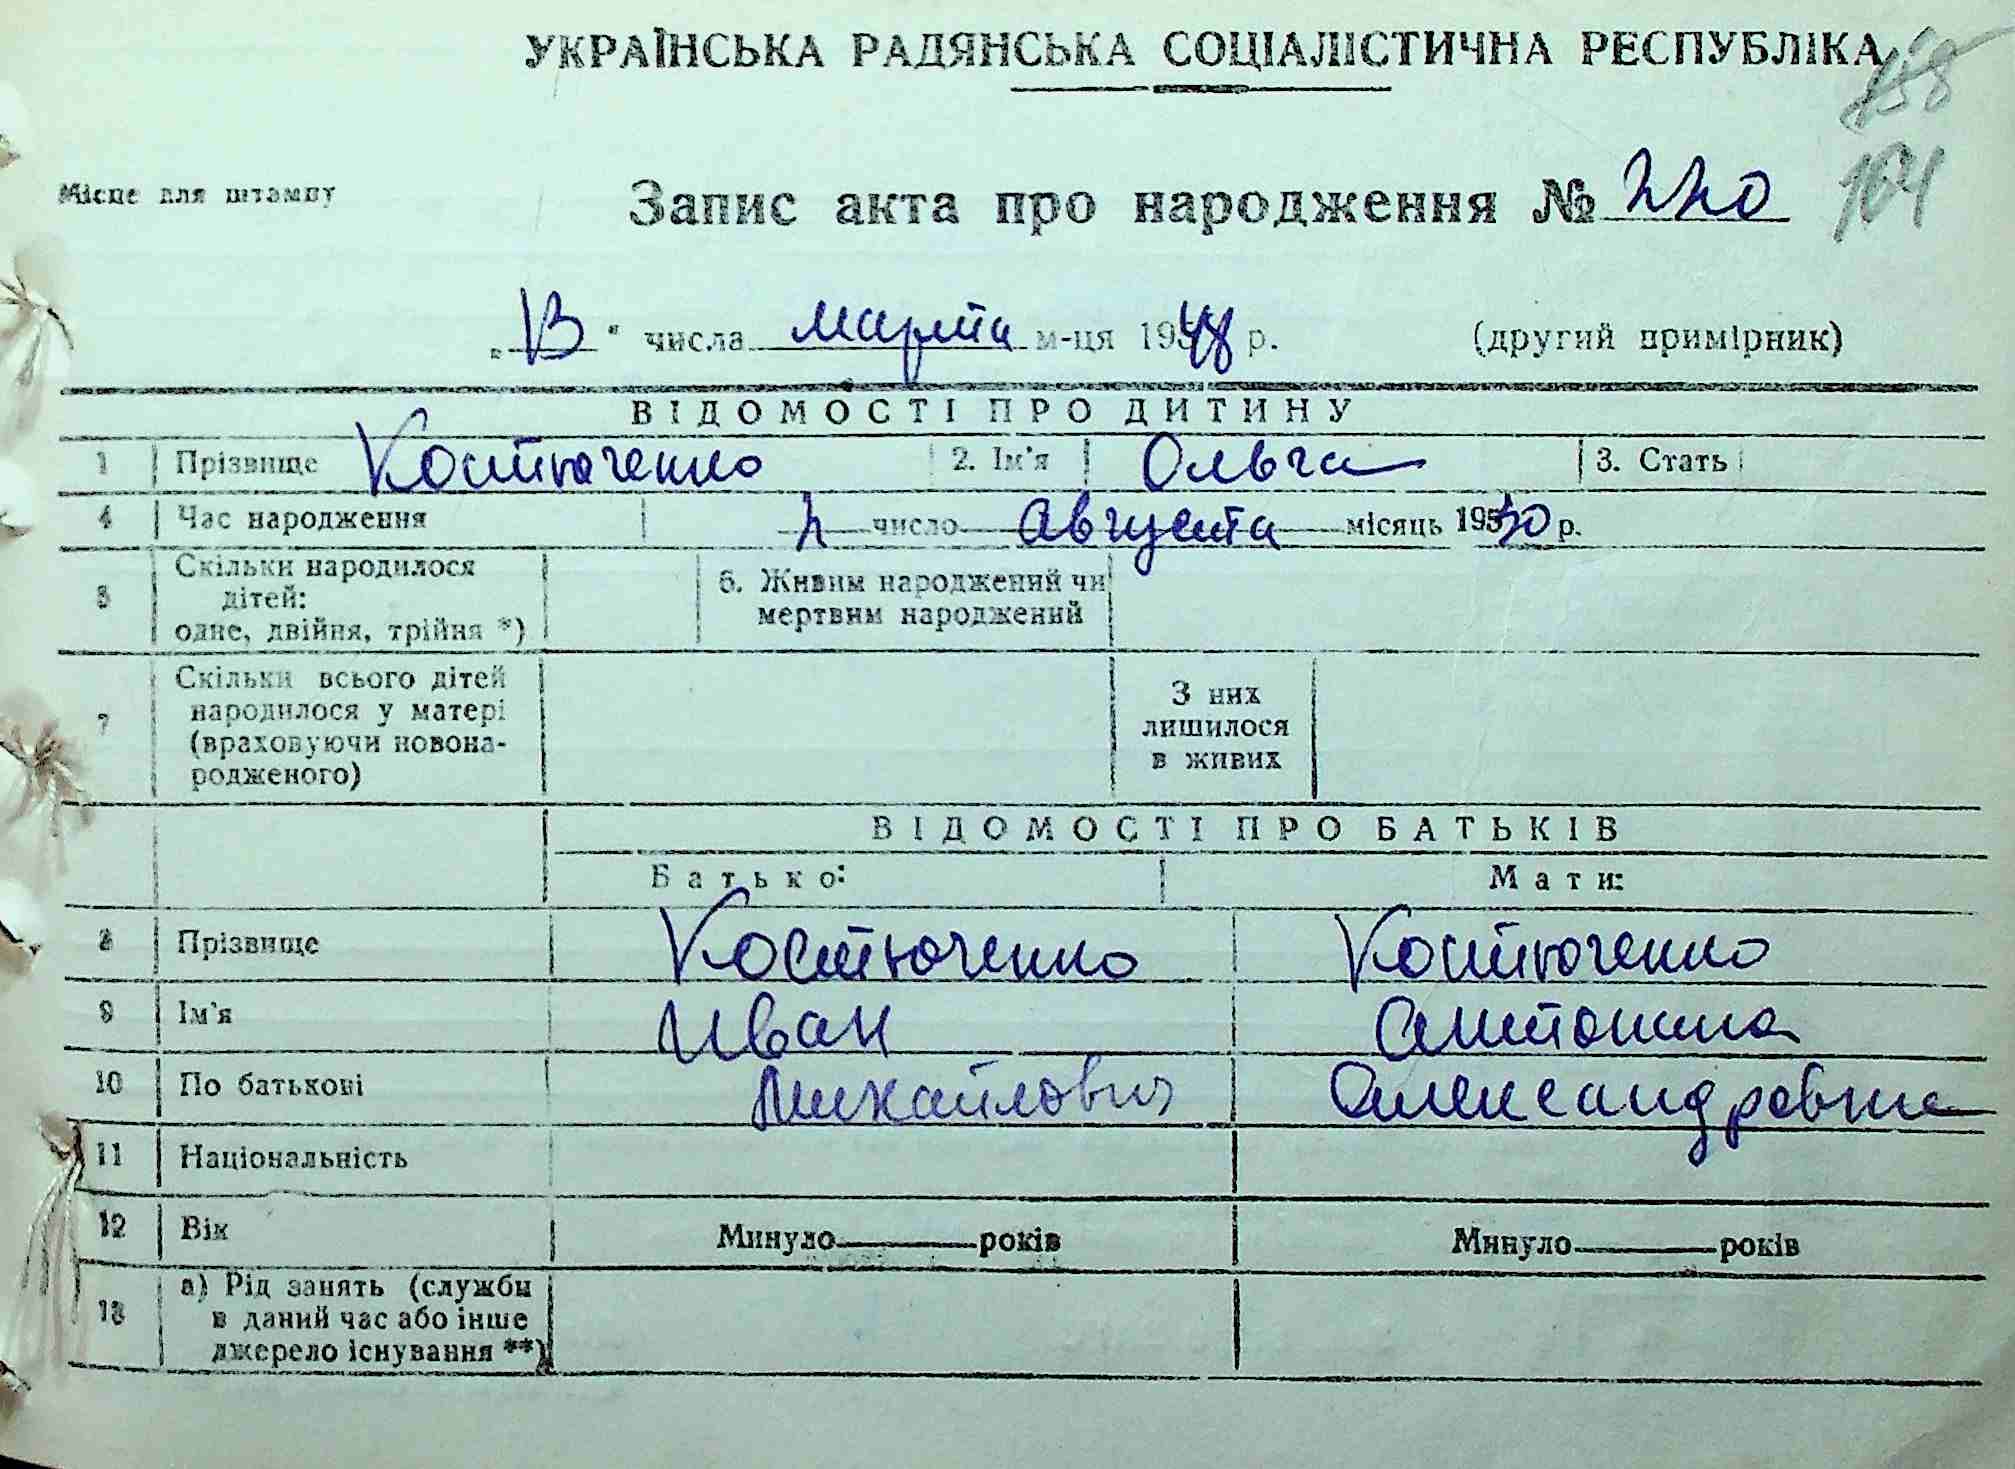 УКРАЇНСЬКА РАДЯНСЬКА СОЦІАЛІСТИЧНА РЕСПУБЛІКА
158
164
Місце для штампу
Запис акта про народження № 220
„13" числа марта м-ця 1948 р. (другий примірник)
ВІДОМОСТІ ПРО ДИТИНУ
1 Прізвище Костюченко 2. Ім'я Ольга 3. Стать
4 Час народження 2 число Августа місяць 1930 р.
5 Скільки народилося дітей: одне, двійня, трійня *) 6. Живим народжений чи мертвим народжений
7 Скільки всього дітей народилося у матері (враховуючи новона-родженого) З них лишилося в живих
ВІДОМОСТІ ПРО БАТЬКІВ
Батько: Мати:
8 Прізвище Костюченко Костюченко
9 Ім'я Иван Антонина
10 По батькові Михайлович Александровна
11 Національність
12 Вік Минуло років Минуло років
13 а) Рід занять (служби в даний час або інше джерело існування **)